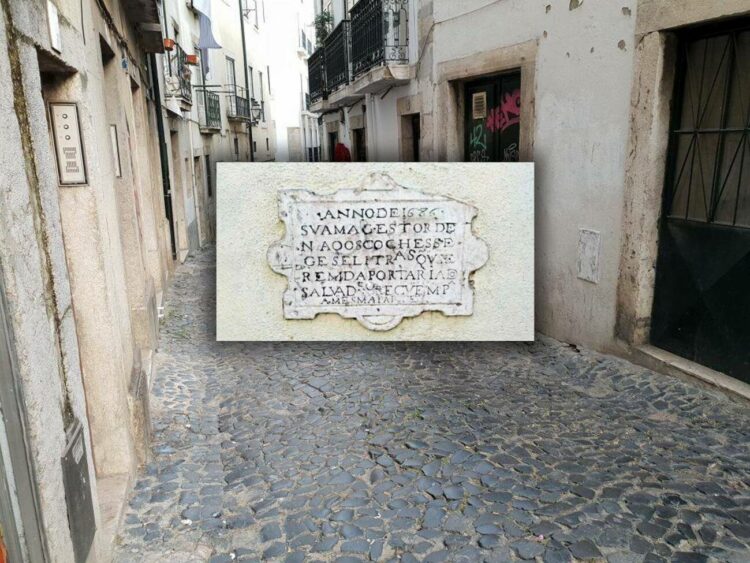 ·ANNODE1686·
SVAMAGESTORDE
NAQOSCOCHESSE
GESELITRASQVIE
REMDAPORTARIADO
SALVADORRECVEMPA
AMESMAPAR